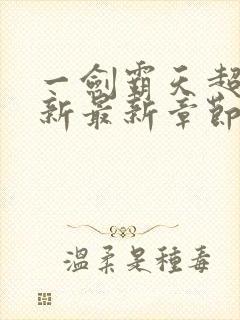 一劍霸天超
新最新章節
溫柔是種毒